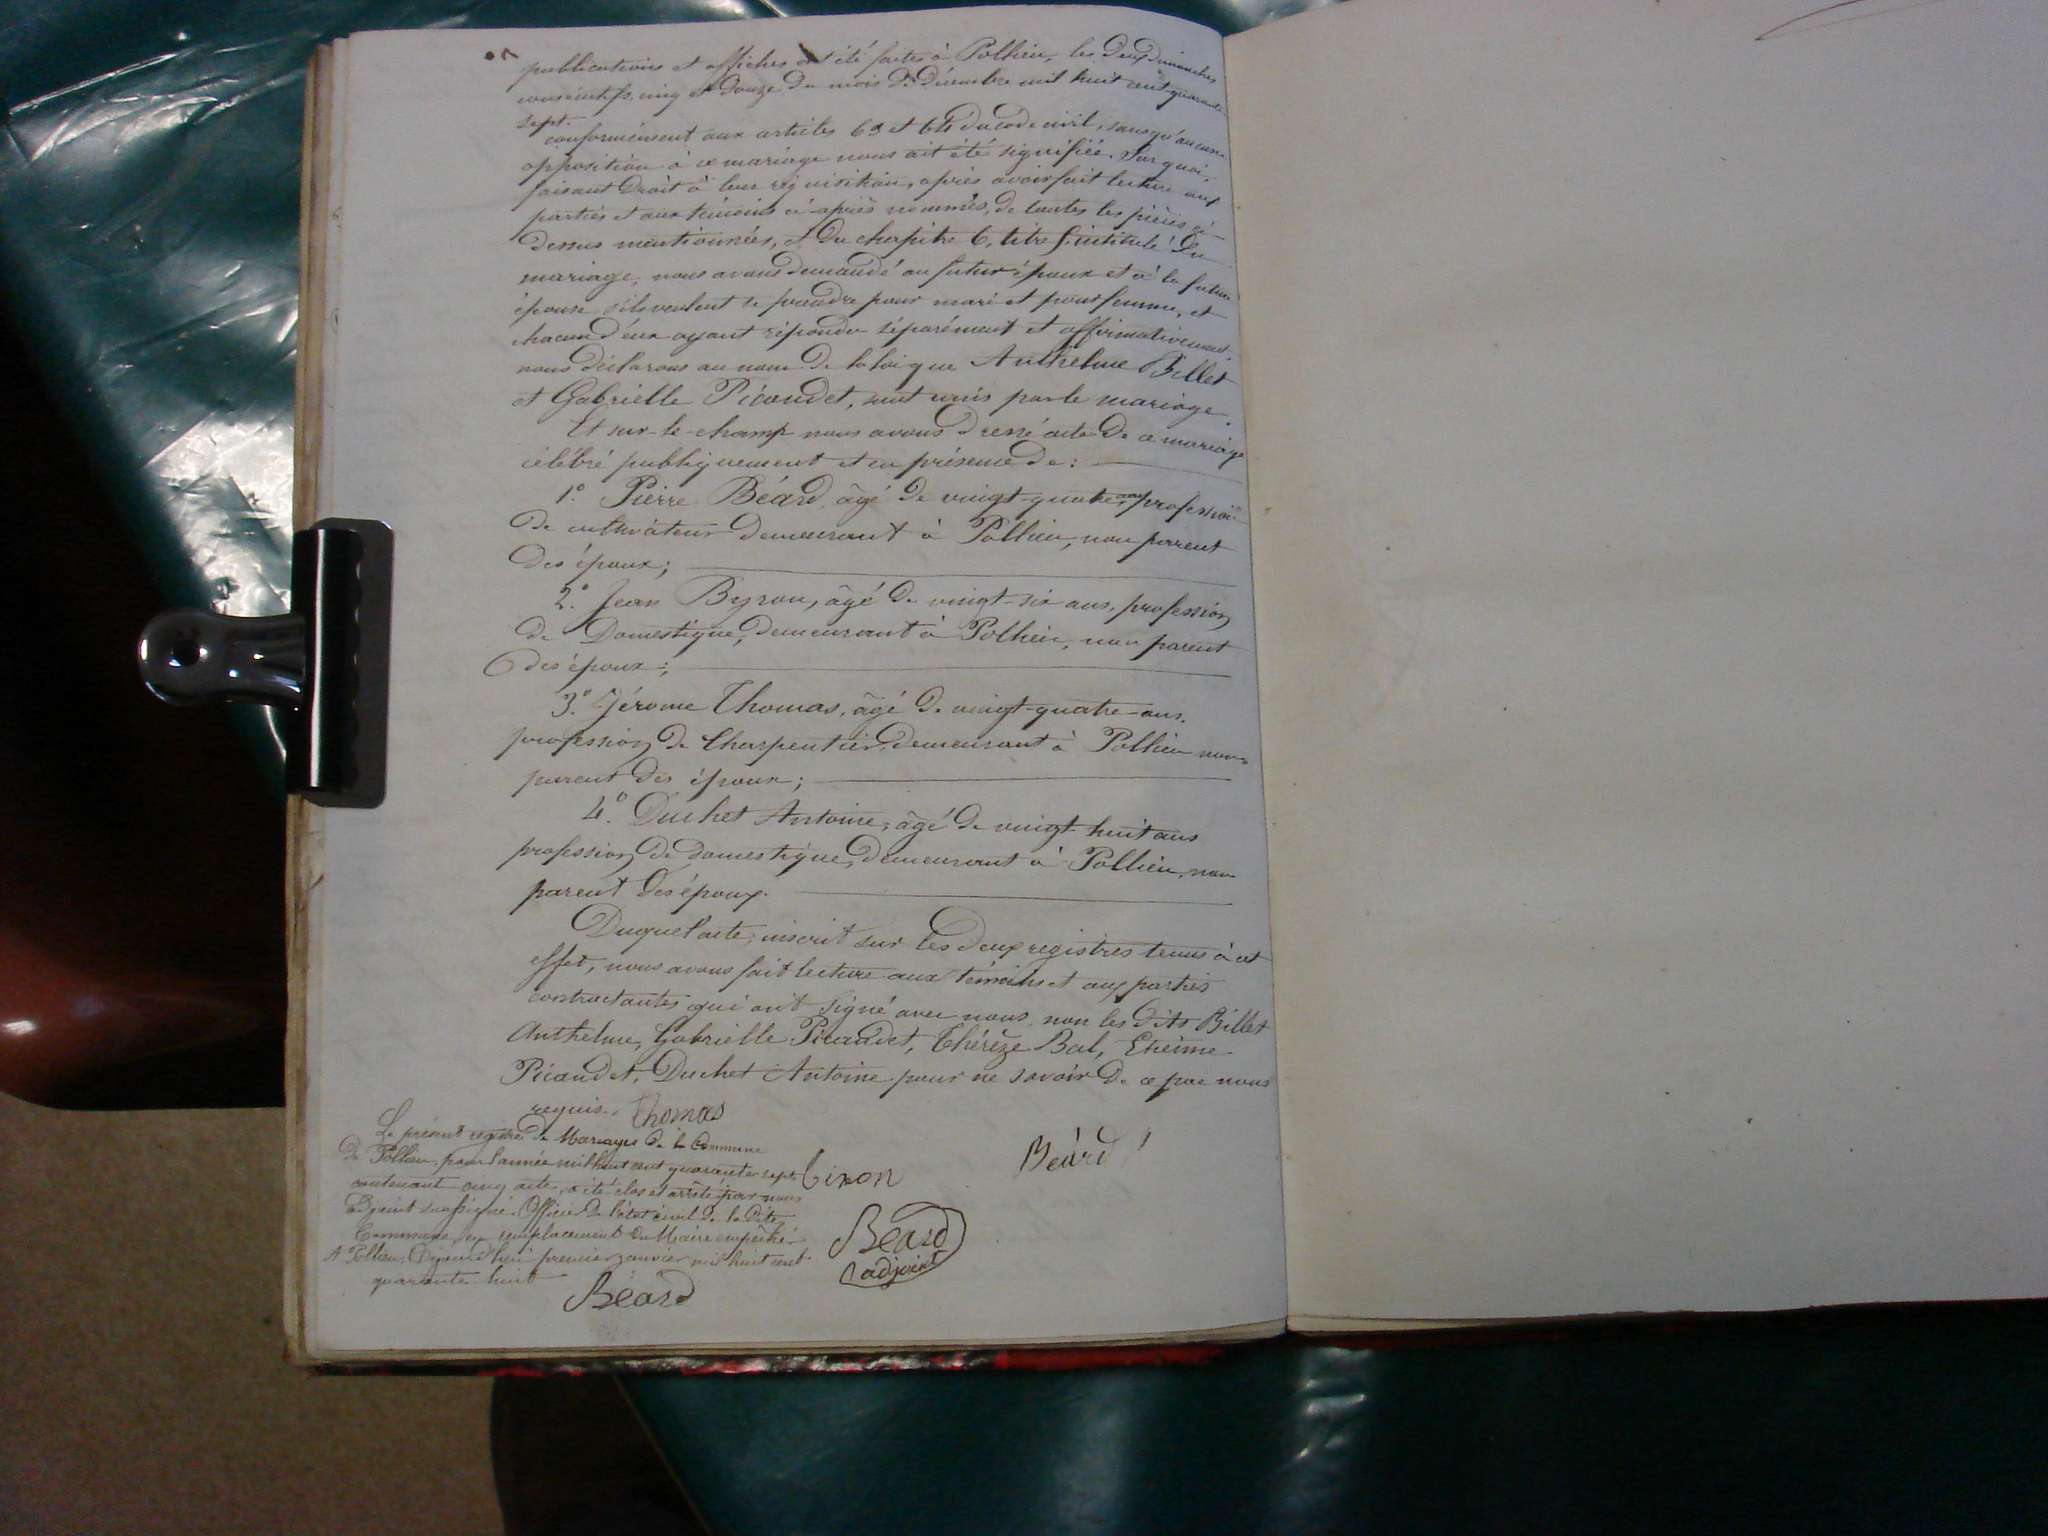 publications et affiches ont été faites à Pollieu, les deux dimanches
consécutifs, cinq et douze du mois de décembre mil huit cent quarante
sept.
conformément aux articles 63 et 64 du code civil, sans qu'aucune
opposition à ce mariage nous ait été signifiée. Sur quoi,
faisant droit à leur réquisition, après avoir fait lecture aux
parties et aux témoins ci-après nommés, de toutes les pièces ci-
dessus mentionnées, et du chapitre 6, titre 5, intitulé Du
mariage, nous avons demandé au futur époux et à la future
épouse s'ils veulent se prendre pour mari et pour femme, et
chacun d'eux ayant répondu séparément et affirmativement,
nous déclarons au nom de la loi que Anthelme Billet
et Gabrielle Picaudet, sont unis par le mariage.
Et sur-le-champ nous avons dressé acte de ce mariage
célébré publiquement et en présence de :
1.° Pierre Béard, âgé de vingt-quatre ans, profession
de cultivateur demeurant à Pollieu, non parent
des époux;
2.° Jean Byron, âgé de vingt-six ans, profession
de Domestique, demeurant à Pollieu, non parent
des époux;
3.° Jérome Thomas, âgé de vingt-quatre-ans,
profession de Charpentier, demeurant à Pollieu non
parent des époux;
4.° Duchet Antoine, âgé de vingt-huit ans
profession de domestique, demeurant à Pollieu, non
parent des époux.
Duquel acte, inscrit sur les deux registres tenus à cet
effet, nous avons fait lecture aux témoins et aux parties
contractantes qui ont signé avec nous, non les dits Billet
Anthelme, Gabrielle Picaudet, Thérèze Bal, Etienne
Picaudet, Duchet Antoine pour ne savoir de ce par nous
requis. Thomas
Le présent registre de Mariages de la Commune
de Pollieu, pour l'année mil huit cent quarante sept,
contenant cinq acte, a été clos et arrêté par nous
adjoint soussigné, Officier de l'état civil de la dite
Commune, en remplacement du Maire empêché.
A Pollieu, Aujourd'hui premier janvier mil huit cent
quarante huit
Béard
Béard
Béard
adjoint